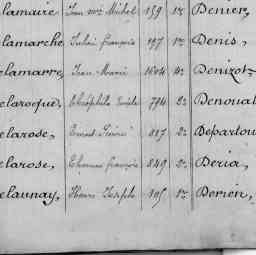 lamaire, Jean Mie Michel 159 1re Denier,
lamarche, Julien François 197 1re Denis,
lamarre, Jean Marie 1604 4e Denizot
elaroque, Théophile Emile 794 2e Denoual
elarose, Ernest 817 2e Departou
elarose, Thomas François 849 2e Deria,
elaunay, Henri Joseph 105 1re Derrien,